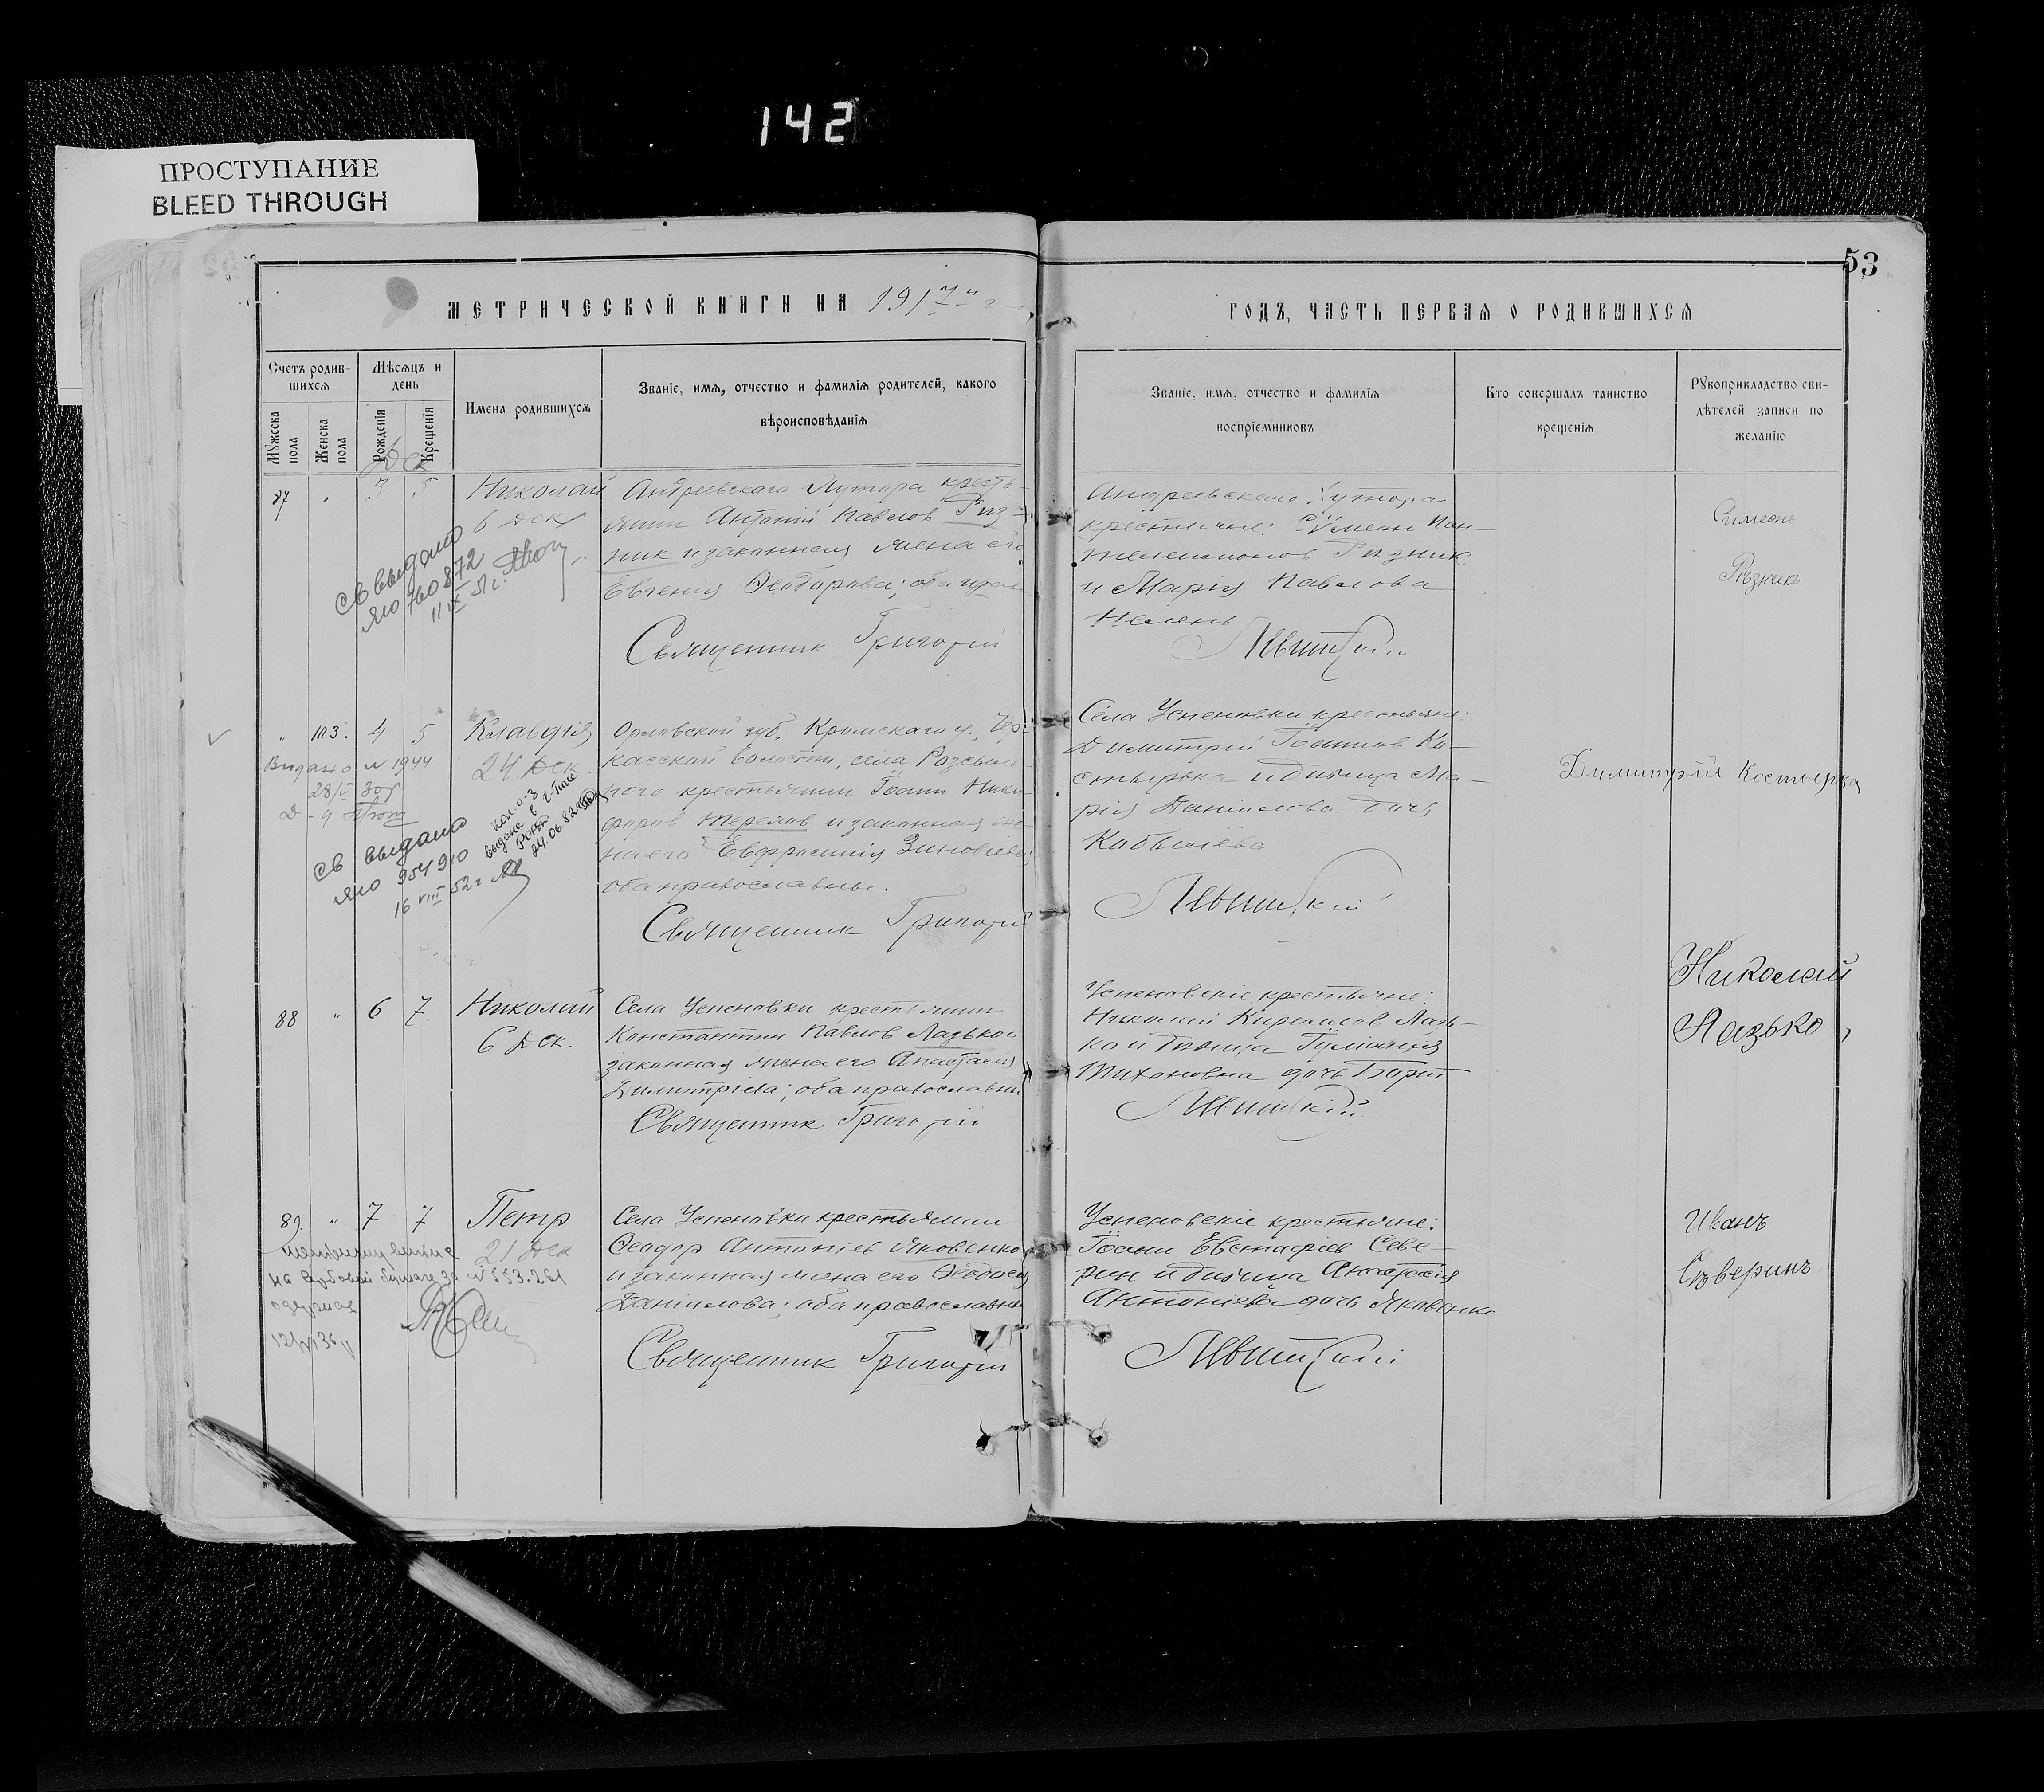 142
ПРОСТУПАНИЕ
BLEED THROUGH
53
МЕТРИЧЕСКОЙ КНИГИ НА 1917
ГОДЪ, ЧАСТЬ ПЕРВАЯ О РОДИВШИХСЯ
Счетъ родив-
шихся
Мѣсяцъ и
день
Имена родившихся
Званіе, имя, отчество и фамилія родителей, какого
вѣроисповѣданія
Званіе, имя, отчество и фамилія
воспріемниковъ
Кто совершалъ таинство
крещенія
Рукоприкладство сви-
дѣтелей записи по
желанію
Мужеска
пола
Женска
пола
Рожденія
Крещенія
Дек
87
3 5
Николай
6 Дек
Св выдано
ЯЮ 760872
11 IX 51 г.
Андреевскаго Хутора кресть-
янин Антоній Павлов Риз-
ник и законная жена его
Евгенія Феодорова; оба прав
Священник Григорій
Андреевскаго Хутора
крестьяне: Сѵмеон Пан-
телеимонов Ризник
и Марія Павлова
Левицкій
Симеонъ
Рѣзникъ
" 103. 4 5
Клавдія
24 Дек.
Видано 1944
28/I
Св выдано
ЯЮ 954910
16 VIII 52 г
выдана в
24.06.82
Орловской губ. Кромскаго у., Чер-
касской волости, села
крестьянин Іоанн Ники-
форов и законная же-
на его Евфросинія Зиновіева;
оба православные.
Священник Григорій
Села Успеновки крестьяне:
Димитрій Іоаннов Ко-
стырка и дѣвица Ма-
рія Даніилова дочь
Левицкій
Димитрій Костырка
88 " 6 7.
Николай
6 Дек.
Села Успеновки крестьянин
Константин Павлов Лазько и
законная жена его Анастасія
Димитріева; оба православные
Священник Григорій
Успеновскіе крестьяне:
Николай Кириллов Лазь-
ко и дѣвица
Тихоновна дочь
Левицкій
Николай
Лазько
89. " 7 7
Петр
21 Дек
на гербовой бумаге за № 553.261
Села Успеновки крестьянин
Феодор Антоніев Яковенко
и законная жена его Феодосія
Даніилова; оба православные
Священник Григорій
Успеновскіе крестьяне:
Іоанн Евстафіев Севе-
рин и дѣвица Анастасія
Антоніева дочь Яковенко
Левицкій
Иванъ
Сѣверинъ